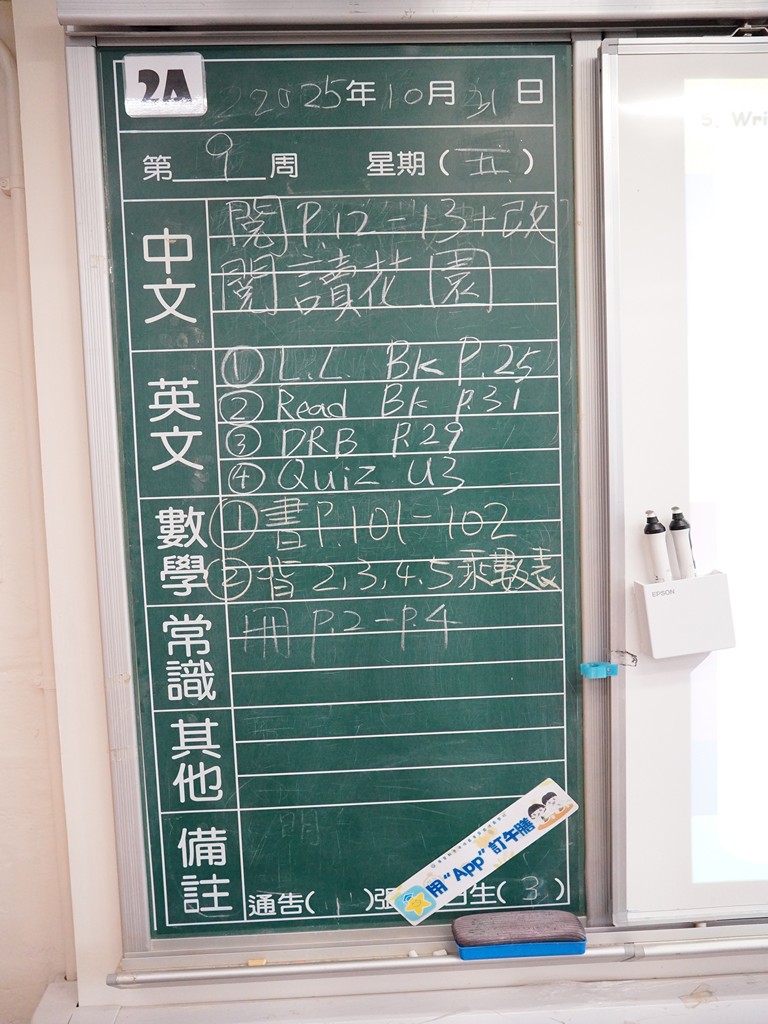 2A
2025年10月31日
第9周 星期(五)
中文
閱 P.12-13+改
閱讀花園
英文
① L.L. Bk P.25
② Read Bk P.31
③ DRB P.29
④ Quiz U3
數學
① 書 P.101-102
② 背 2,3,4,5 乘數表
常識
冊 P.2-P.4
其他
備註
通告(1)張
生(3)
用“App”訂午膳
5. Wri
EPSON